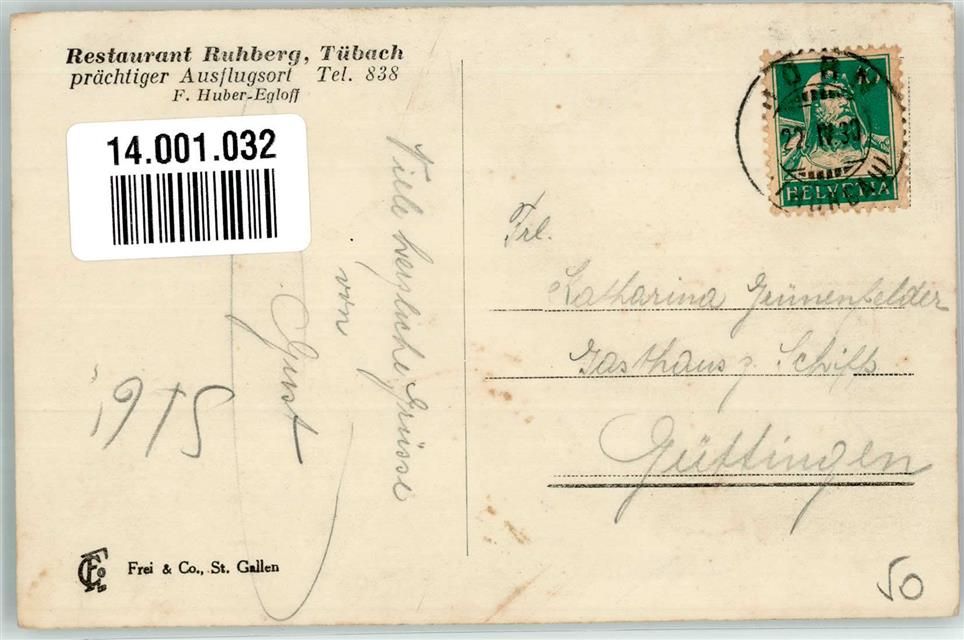 Restaurant Ruhberg, Tübach
prächtiger Ausflugsort Tel. 838
F. Huber-Egloff
14.001.032
Viele herzliche Grüsse
von
Gust
HORN
22. IV. 30
HELVETIA
Frl.
Katharina Grünenfelder
Gasthaus z. Schiff
Güttingen
Frei & Co., St. Gallen
50